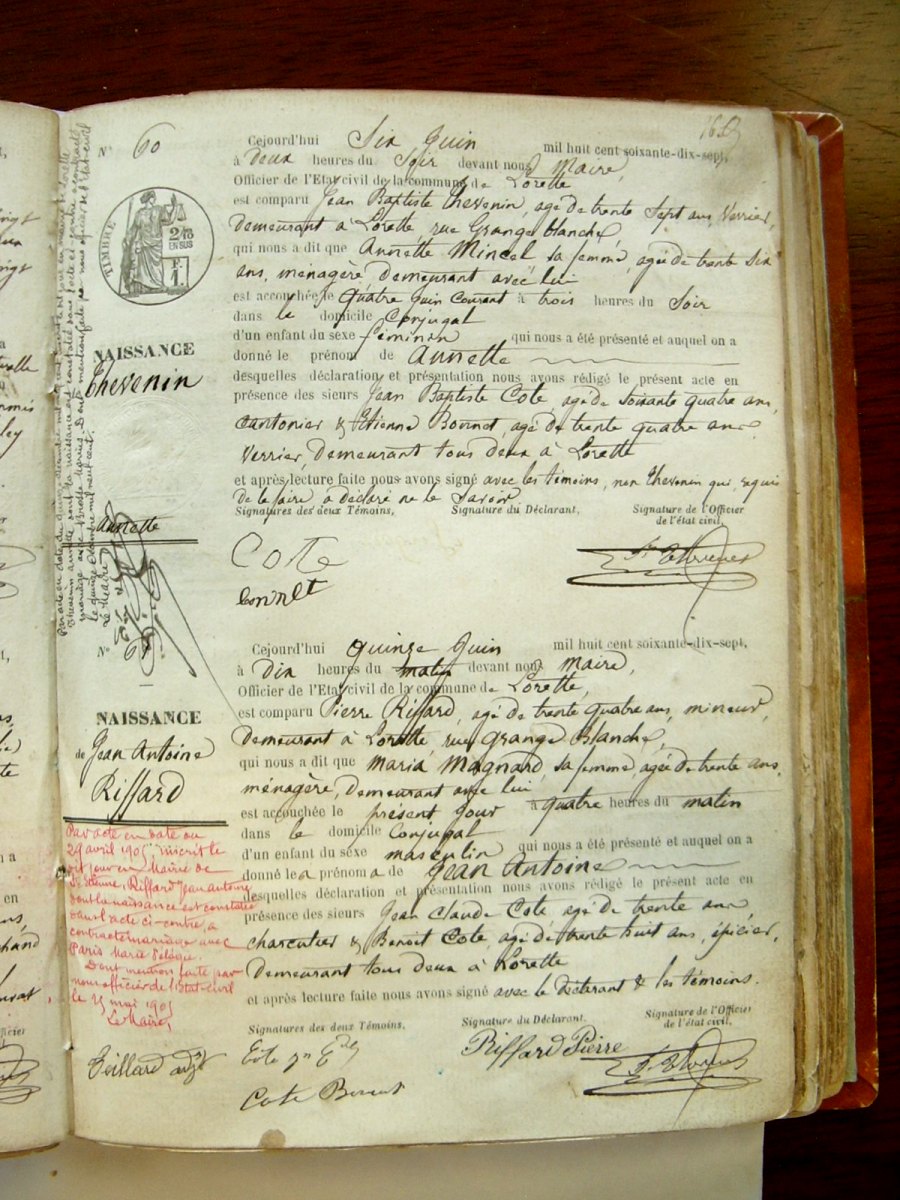 N° 60
TIMBRE
2/10
EN SUS
NAISSANCE
Thevenin
Annette
Cejourd'hui Six Juin mil huit cent soixante-dix-sept,
à deux heures du Soir devant nous Maire,
Officier de l'Etat civil de la commune de Lorette
est comparu Jean Baptiste Thevenin, agé de trente Sept ans, Verrier,
demeurant à Lorette, rue Grange blanche
qui nous a dit que Annette Mincel sa femme, agée de trente Six
ans, ménagère, demeurant avec lui
est accouchée le quatre Juin courant à trois heures du Soir
dans le domicile Conjugal
d'un enfant du sexe féminin qui nous a été présenté et auquel on a
donné le prénom de Annette
desquelles déclaration et présentation nous avons rédigé le présent acte en
présence des sieurs Jean Baptiste Cote, agé de soixante quatre ans,
Cantonier & Etienne Bonnet agé de trente quatre ans
Verrier, demeurant tous deux à Lorette
et après lecture faite nous avons signé avec les témoins, non Thevenin qui, requis
de le faire a déclaré ne le Savoir
Signatures des deux Témoins, Signature du Déclarant, Signature de l'Officier
de l'état civil,
Cote
Bonnet
N° 61
NAISSANCE
de Jean Antoine
Riffard
Cejourd'hui quinze Juin mil huit cent soixante-dix-sept,
à Dix heures du matin devant nous Maire,
Officier de l'Etat civil de la commune de Lorette,
est comparu Pierre Riffard, agé de trente quatre ans, mineur,
demeurant à Lorette rue Grange Blanche,
qui nous a dit que Maria Magnard, sa femme agée de trente ans,
ménagère, demeurant avec lui
est accouchée le présent jour à quatre heures du matin
dans le domicile Conjugal
d'un enfant du sexe masculin qui nous a été présenté et auquel on a
donné le prénom de Jean Antoine
desquelles déclaration et présentation nous avons rédigé le présent acte en
présence des sieurs Jean Claude Cote agé de trente ans
charcutier & Benoit Cote agé de trente huit ans, épicier,
demeurant tous deux à Lorette
et après lecture faite nous avons signé avec le déclarant & les témoins.
Signatures des deux Témoins, Signature du Déclarant. Signature de l'Officier
de l'état civil,
Riffard Pierre
Cote Benoit
Par acte en date du
29 avril 1905 inscrit le
dit jour en Mairie de
St Etienne, Riffard Jean antoine
dont la naissance est constatée
dans l'acte ci-contre, a
contracté mariage avec
Paris Marie
Dont mention faite par
nous officier de l'Etat-civil
le 15 mai 1905
Le Maire,
Teillard adjt